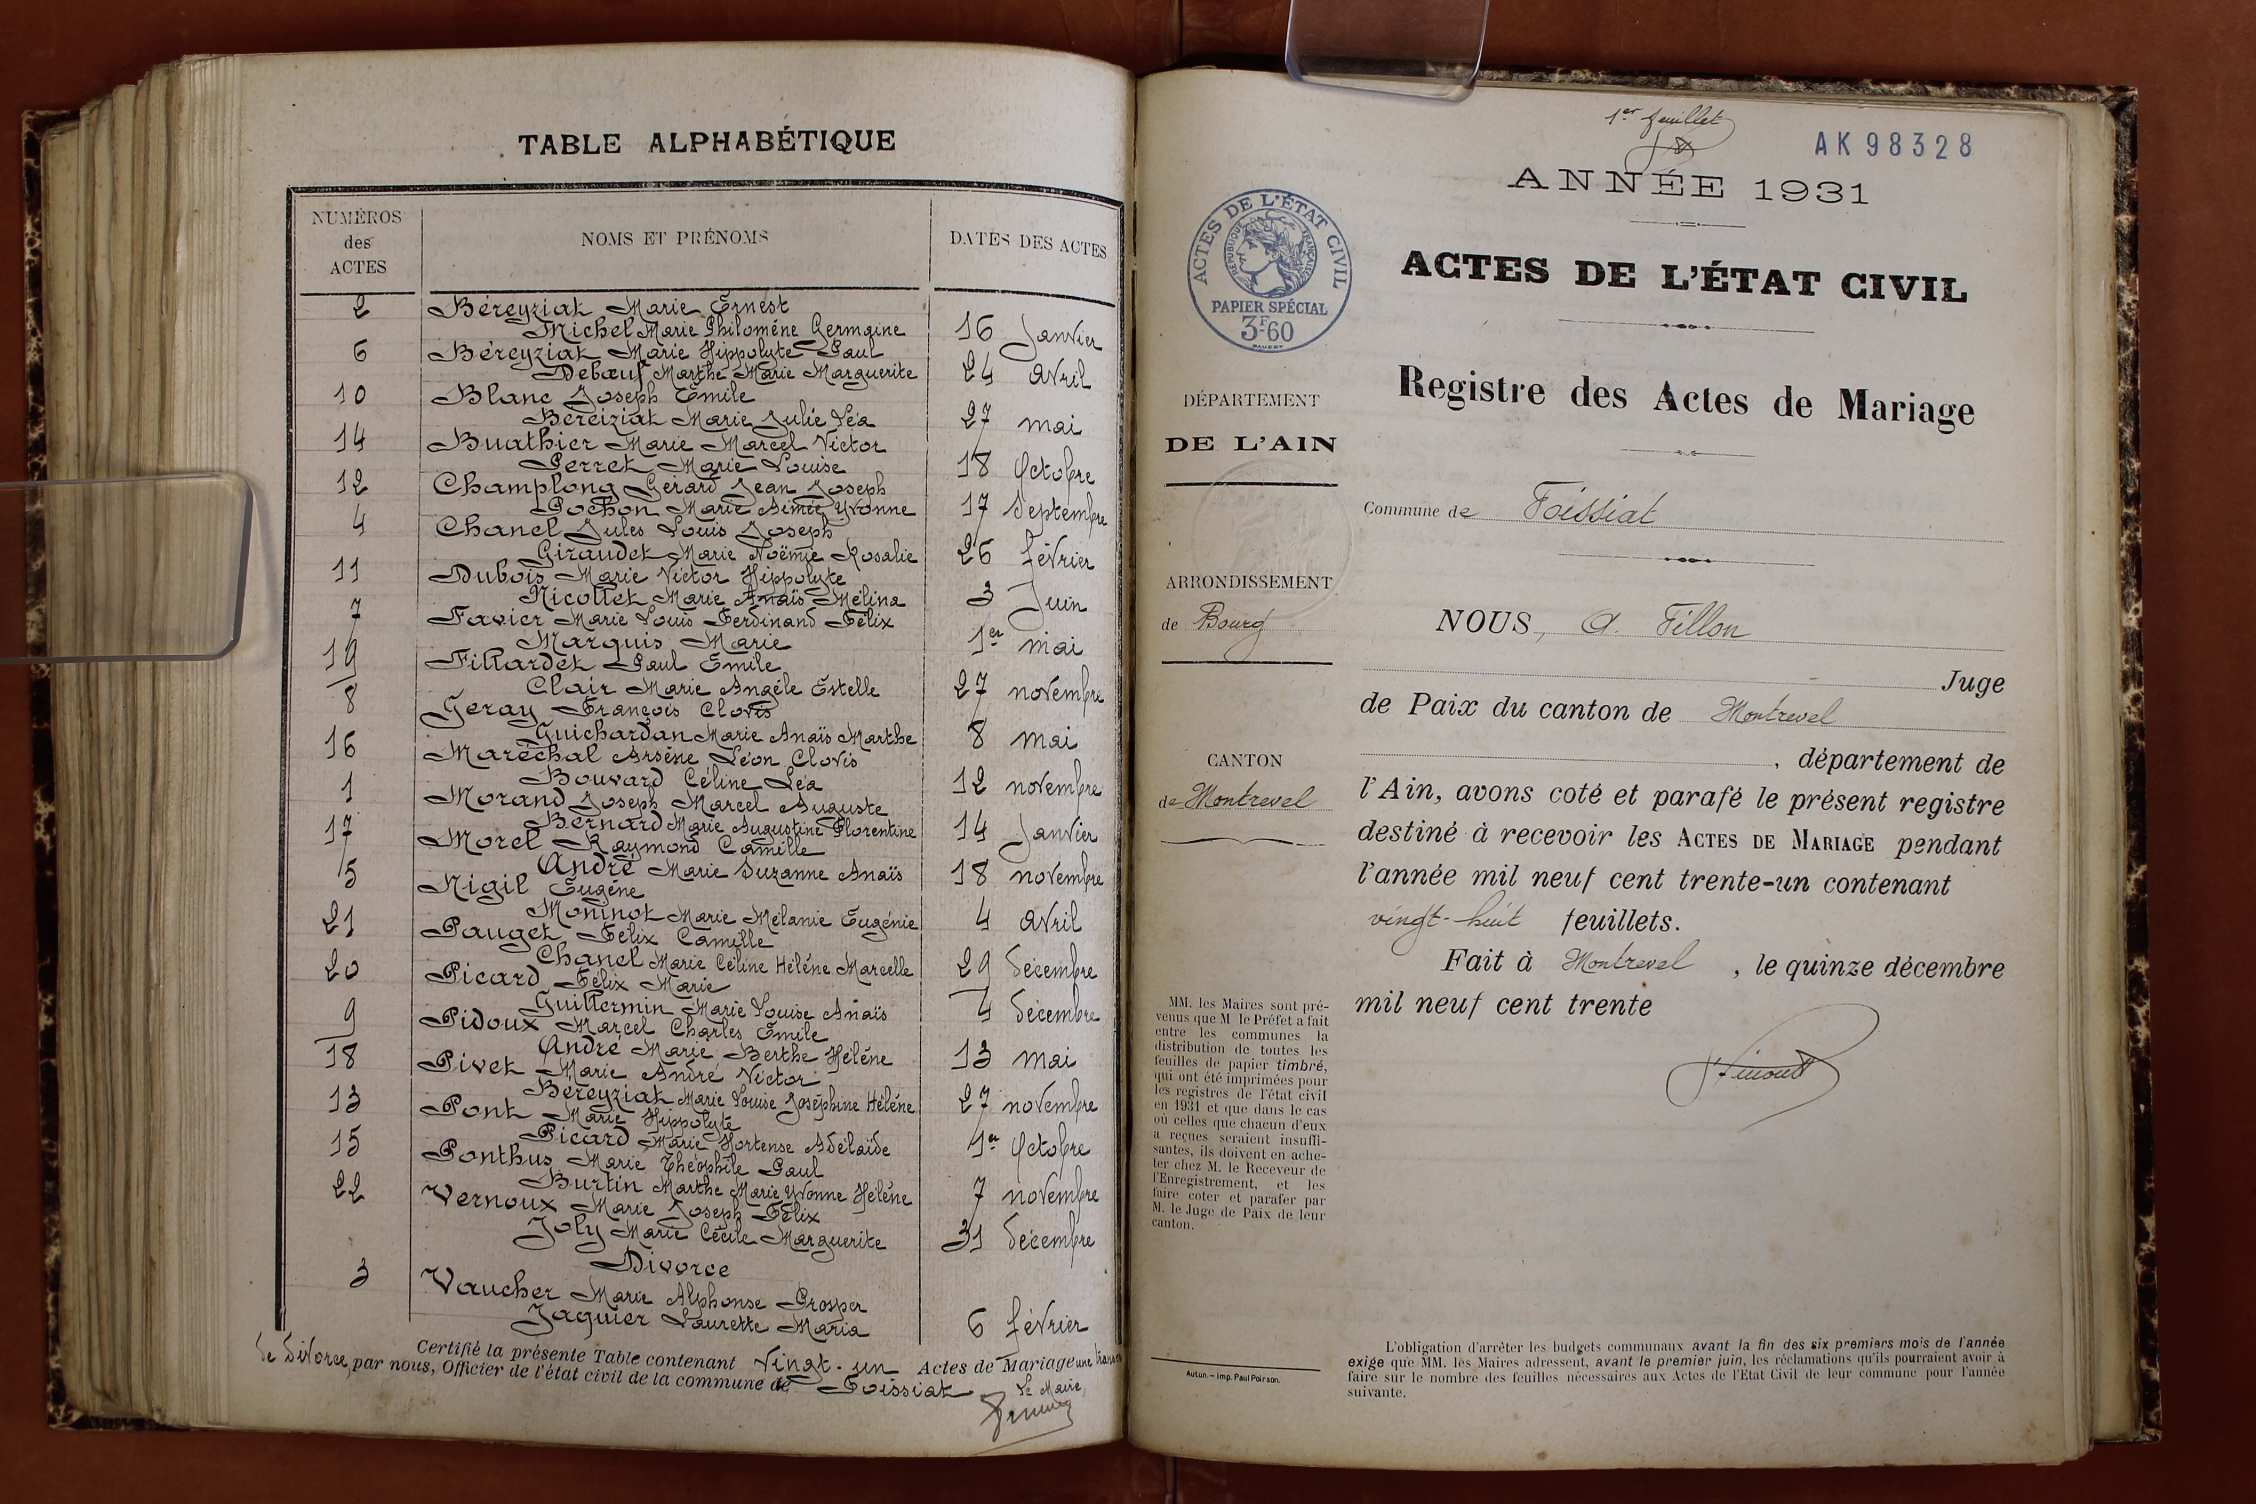 TABLE ALPHABÉTIQUE
NUMÉROS des ACTES
NOMS ET PRÉNOMS
DATES DES ACTES
2 Béreyziat Marie Ernest
Michel Marie Philomène Germaine 16 Janvier
6 Béreyziat Marie Hippolyte Paul
Debœuf Marthe Marie Marguerite 24 avril
10 Blanc Joseph Emile
Béreiziat Marie Julie Léa 27 mai
14 Buathier Marie Marcel Victor
Perret Marie Louise 18 Octobre
12 Champlong Gérard Jean Joseph
Pochon Marie Aimée Yvonne 17 Septembre
4 Chanel Jules Louis Joseph
Giraudet Marie Noëmie Rosalie 26 février
11 Dubois Marie Victor Hippolyte
Nicollet Marie Anaïs Mélina 3 Juin
7 Favier Marie Louis Ferdinand Félix
Marquis Marie 1er mai
19 Fillardet Paul Emile
Clair Marie Angèle Estelle 27 novembre
8 Geray François Clovis
Guichardan Marie Anaïs Marthe 8 mai
16 Maréchal Arsène Léon Clovis
Bouvard Céline Léa 12 novembre
1 Morand Joseph Marcel Auguste
Bernard Marie Augustine Florentine 14 Janvier
17 Morel Raymond Camille
André Marie Suzanne Anaïs 18 novembre
5 Nigil Eugène
Moninot Marie Mélanie Eugénie 4 avril
21 Pauget Félix Camille
Chanel Marie Céline Hélène Marcelle 29 décembre
20 Picard Félix Marie
Guillermin Marie Louise Anaïs 4 décembre
9 Pidoux Marcel Charles Emile
André Marie Berthe Hélène 13 mai
18 Pivet Marie André Victor
Béreyziat Marie Louise Joséphine Hélène 27 novembre
13 Pont Marie Hippolyte
Picard Marie Hortense Adélaïde 1er Octobre
15 Ponthus Marie Théophile Paul
Burtin Marthe Marie Yvonne Hélène 7 novembre
22 Vernoux Marie Joseph Félix
Joly Marie Cécile Marguerite 31 décembre
Divorce
3 Vaucher Marie Alphonse Prosper
Jaguier Laurette Maria 6 février
Certifié la présente Table contenant Vingt-un Actes de Mariage une
de divorce, par nous, Officier de l'état civil de la commune de Foissiat
Le Maire,
1er feuillet
AK 98328
ANNÉE 1931
ACTES DE L'ÉTAT CIVIL
RÉPUBLIQUE FRANÇAISE
PAPIER SPÉCIAL
3F60
ACTES DE L'ÉTAT CIVIL
Registre des Actes de Mariage
DÉPARTEMENT
DE L'AIN
Commune de Foissiat
ARRONDISSEMENT
de Bourg
NOUS, A. Fillon
Juge
de Paix du canton de Montrevel
, département de
CANTON
de Montrevel
l'Ain, avons coté et parafé le présent registre
destiné à recevoir les ACTES DE MARIAGE pendant
l'année mil neuf cent trente-un contenant
vingt-huit feuillets.
Fait à Montrevel, le quinze décembre
mil neuf cent trente
MM. les Maires sont pré-
venus que M le Préfet a fait
entre les communes la
distribution de toutes les
feuilles de papier timbré,
qui ont été imprimées pour
les registres de l'état civil
en 1931 et que dans le cas
où celles que chacun d'eux
a reçues seraient insuffi-
santes, ils doivent en ache-
ter chez M. le Receveur de
l'Enregistrement, et les
faire coter et parafer par
M. le Juge de Paix de leur
canton.
Autun. — Imp. Paul Poirson.
L'obligation d'arrêter les budgets communaux avant la fin des six premiers mois de l'année
exige que MM. les Maires adressent, avant le premier juin, les réclamations qu'ils pourraient avoir à
faire sur le nombre des feuilles nécessaires aux Actes de l'Etat Civil de leur commune pour l'année
suivante.